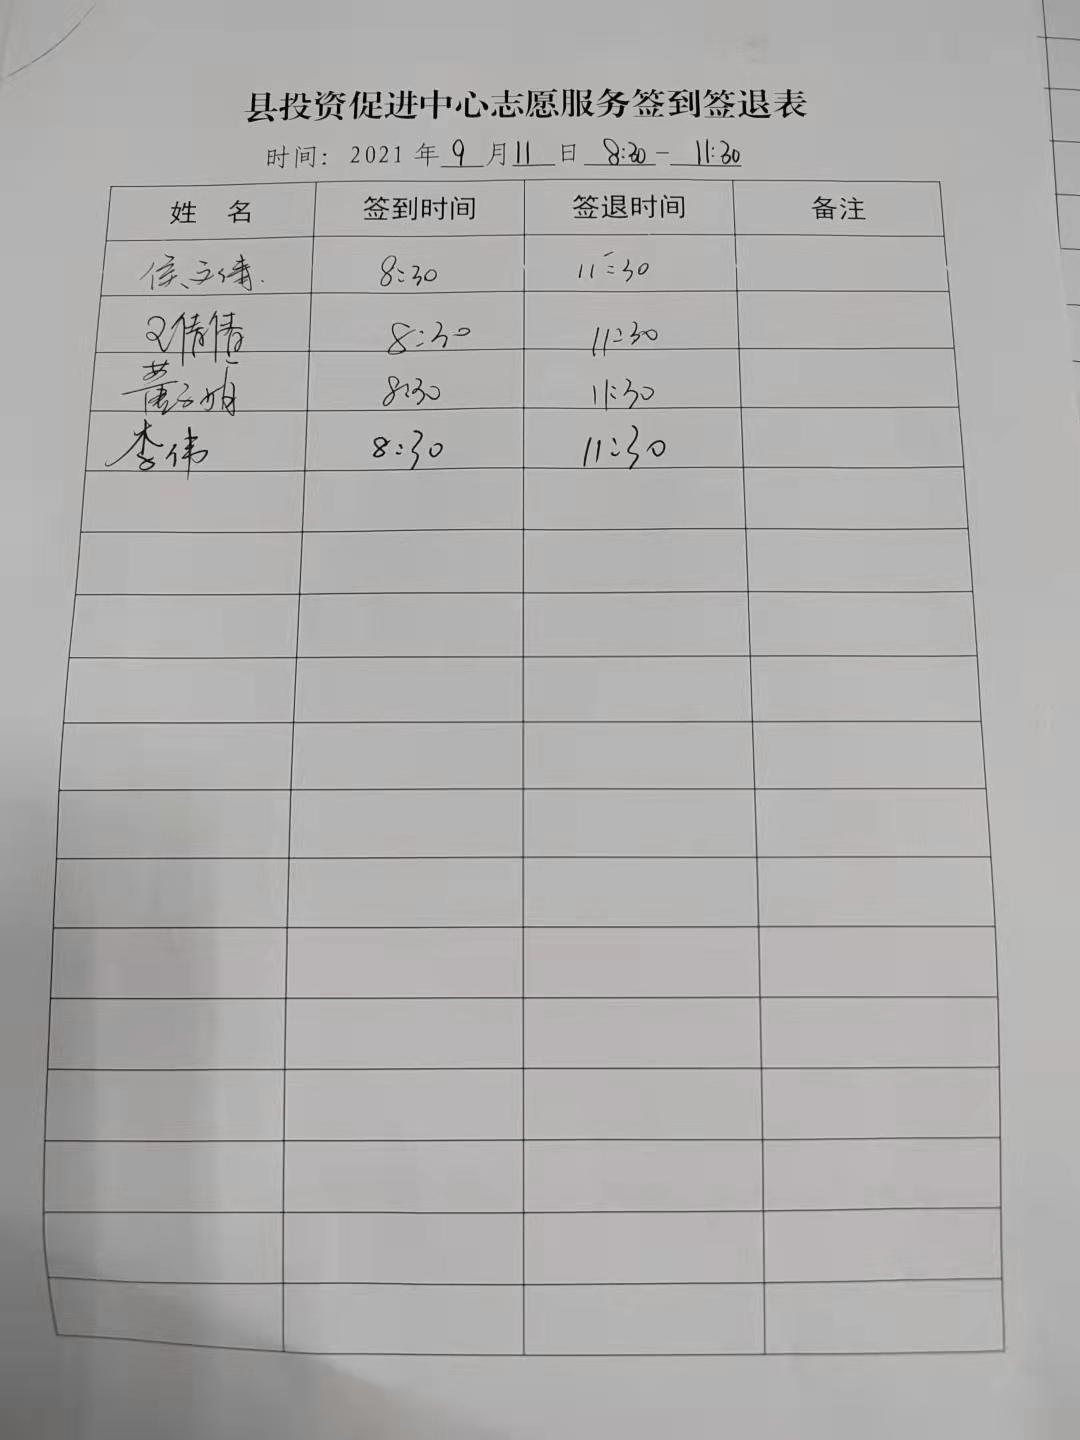 县投资促进中心志愿服务签到签退表
时间：2021年9月11日 8:30-11:30
姓 名 签到时间 签退时间 备注
侯文倩 8:30 11:30
王倩倩 8:30 11:30
8:30 11:30
李伟 8:30 11:30